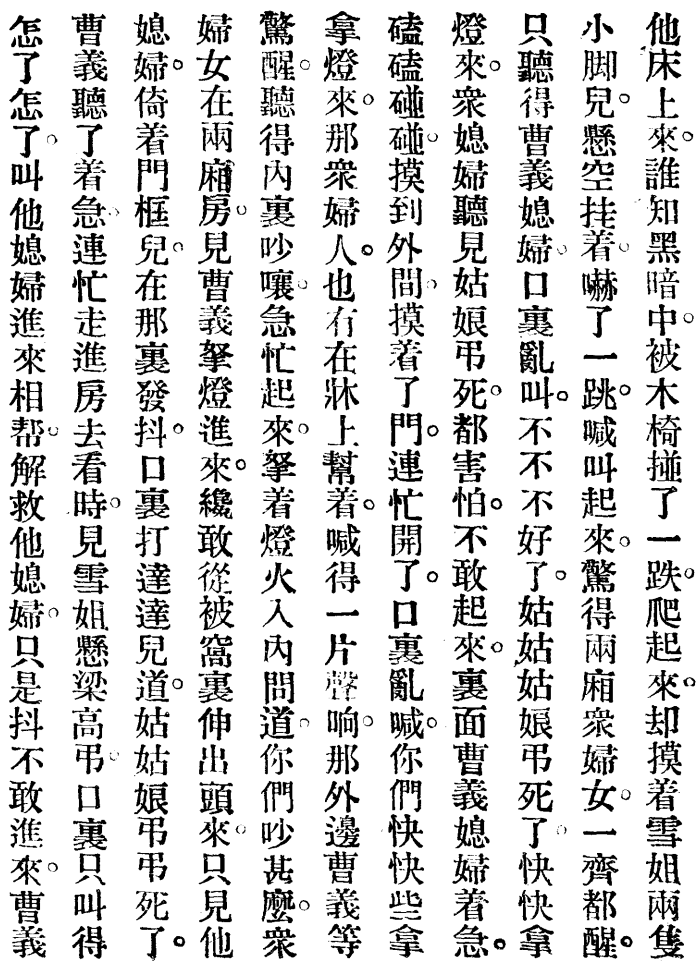 他床上來。誰知黑暗中。被木椅撞了一跌。爬起來。却摸着雪姐兩隻
小脚兒。懸空挂着。嚇了一跳。喊叫起來。驚得兩廂衆婦女。一齊都醒。
只聽得曹義媳婦。口裏亂叫。不不不好了。姑姑姑娘弔死了。快快拿
燈來。衆媳婦聽見姑娘弔死。都害怕。不敢起來。裏面曹義媳婦着急。
磕磕碰碰。摸到外間。摸着了門。連忙開了。口裏亂喊。你們快快些拿
拿燈來。那衆婦人。也有在牀上幫着。喊得一片聲响。那外邊曹義等
驚醒。聽得內裏吵嚷。急忙起來。拏着燈火入內問道。你們吵甚麽。衆
婦女在兩廂房。見曹義拏燈進來。纔敢從被窩裏伸出頭來。只見他
媳婦。倚着門框兒。在那裏發抖。口裏打達達兒道。姑姑娘弔弔死了。
曹義聽了着急。連忙走進房去看時。見雪姐懸梁高弔。口裏只叫得
怎了怎了。叫他媳婦進來相帮。解救他媳婦。只是抖不敢進來。曹義